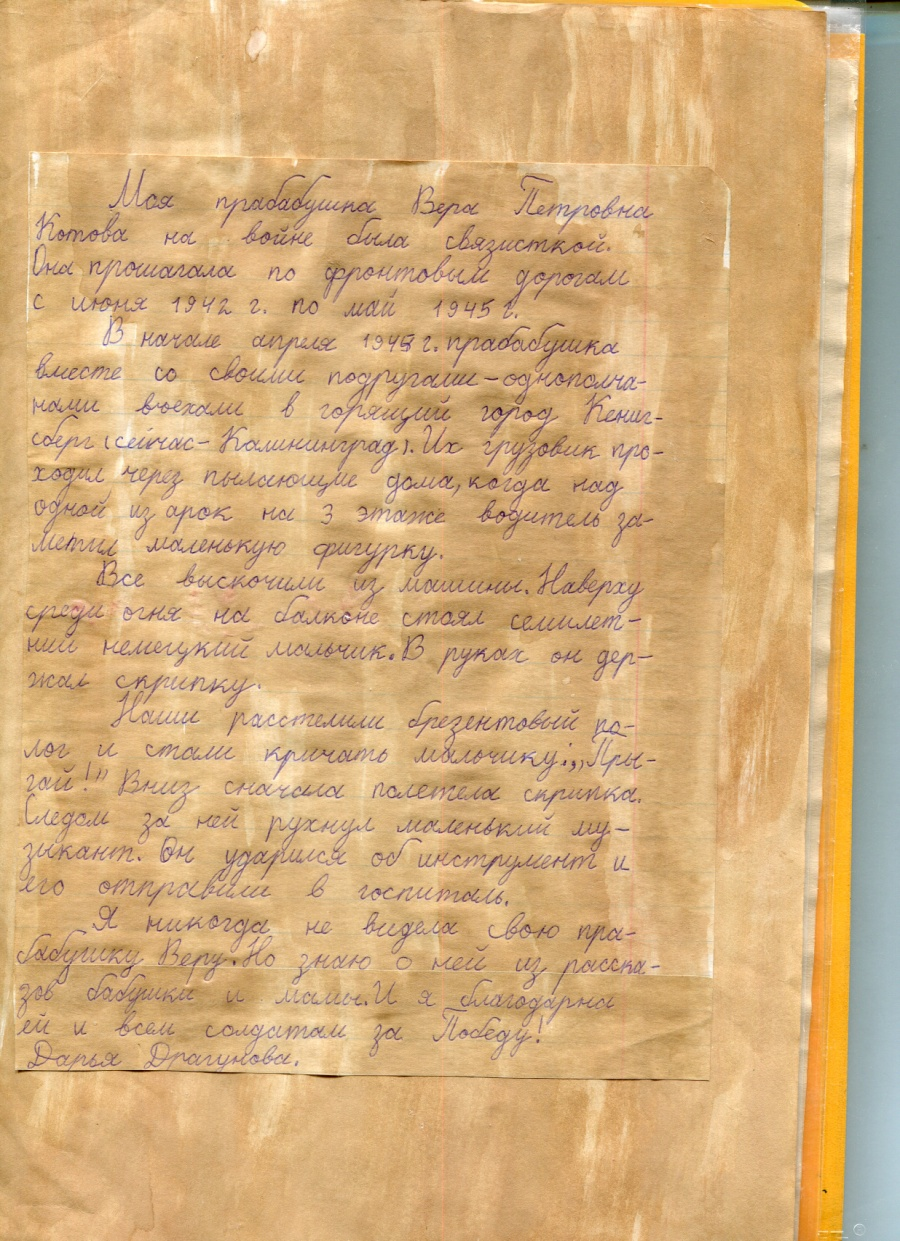 Моя прабабушка Вера Петровна
Котова на войне была связисткой.
Она прошагала по фронтовым дорогам
с июня 1942 г. по май 1945 г.
В начале апреля 1945 г. прабабушка
вместе со своими подругами-однополча-
нами въехали в горящий город Кениг-
сберг (сейчас - Калининград). Их грузовик про-
ходил через пылающие дома, когда над
одной из арок на 3 этаже водитель за-
метил маленькую фигурку.
Все выскочили из машины. Наверху
среди огня на балконе стоял семилет-
ний немецкий мальчик. В руках он дер-
жал скрипку.
Наши расстелили брезентовый по-
лог и стали кричать мальчику: „Пры-
гай!" Вниз сначала полетела скрипка.
Следом за ней рухнул маленький му-
зыкант. Он ударился об инструмент и
его отправили в госпиталь.
Я никогда не видела свою пра-
бабушку Веру. Но знаю о ней из расска-
зов бабушки и мамы. И я благодарна
ей и всем солдатам за Победу!
Дарья Драгунова.